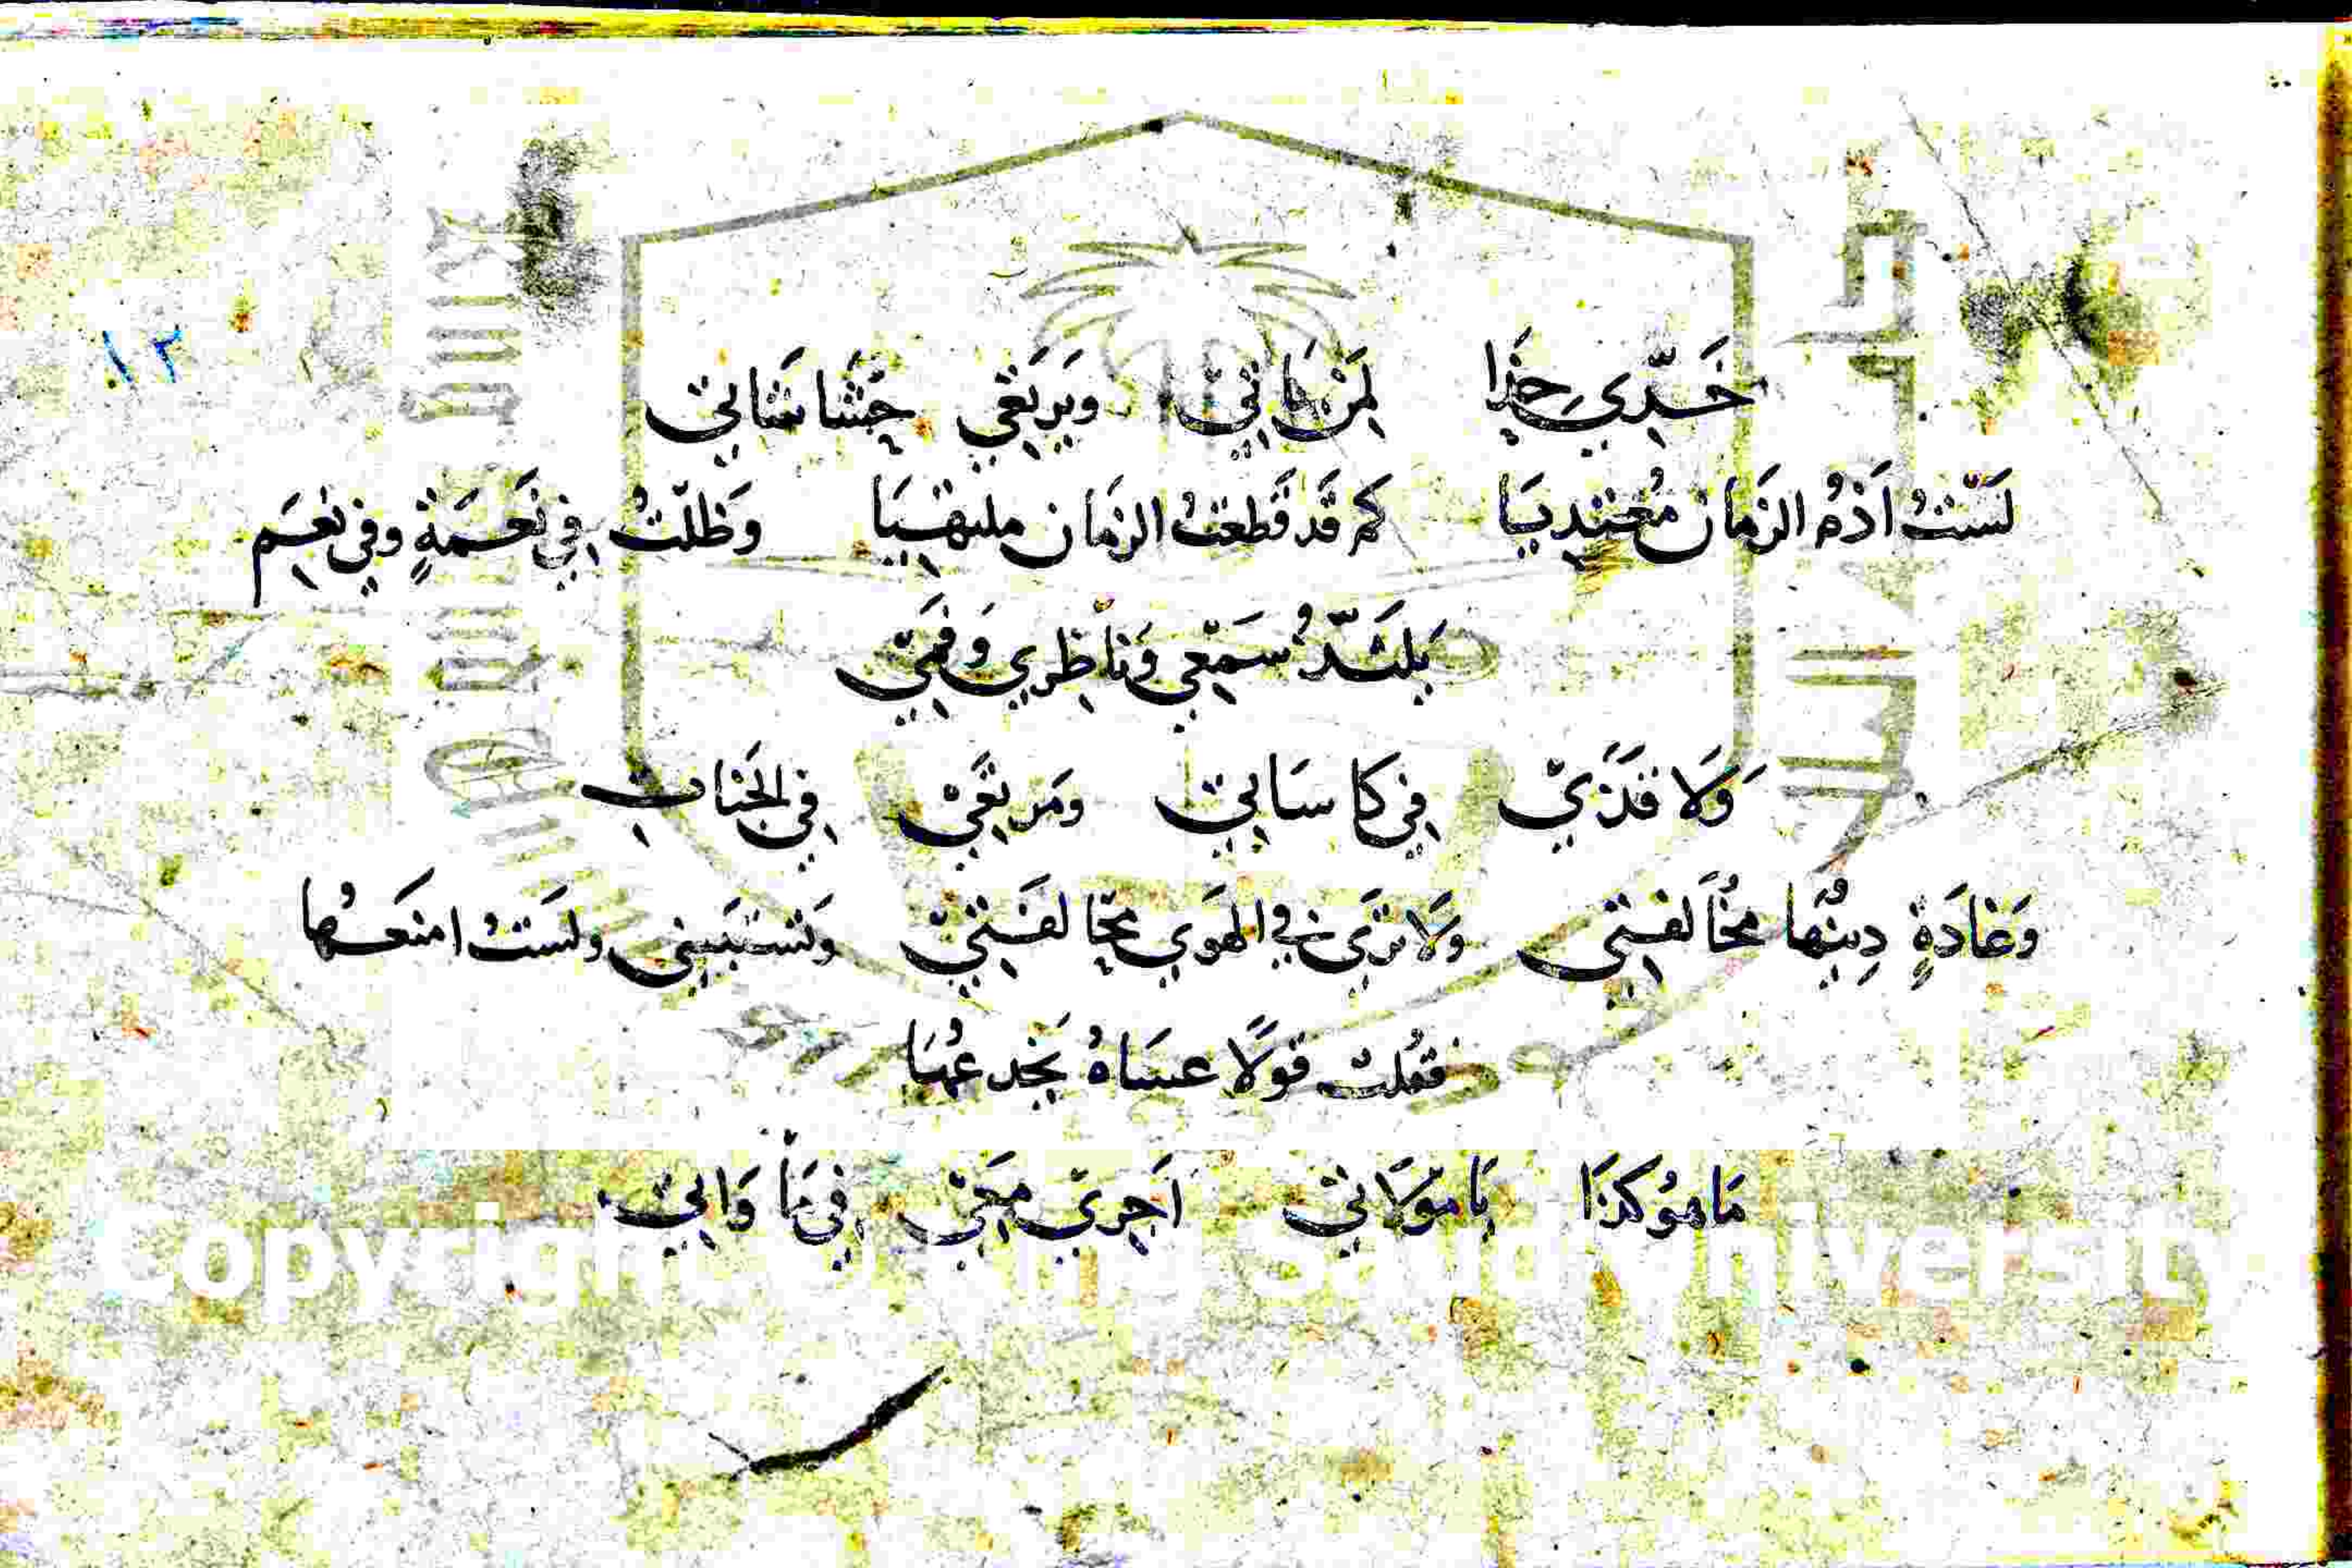 ١٢
خَدِّي حِذَا لِمَنْ يَاتِيْ وَيَرْتَقِي حَشَاشَاتِيْ
لَسْتُ اَذُمُ الزَمَان مُعْتَدِيَا كم قَد قَطعْتُ الزمَان ملتهيَا وَظَلْتُ فِي نَعْمَةٍ وفي نعَم
يلتَذُّ سَمْعِي وَنَاظِري وَفَمِيْ
وَلَا قَذَيْ فِي كاسَاتِيْ ومَرتَعِيْ فِي الجَنَاتِ
وَغَادَةٍ دِينُهَا مُخَالفتِي وَلَا تَرَي في الهَوَي مخالفَتِيْ وَتَسْتَبِينِي ولسَتُ امنَعُها
فقُلت قَولًا عسَاهُ يَخْدعُهَا
مَا هوُ كذَا يَا مَوْلَاتِيْ اَجْرِيْ مَعِيْ فِي مَا وَاتِيْ